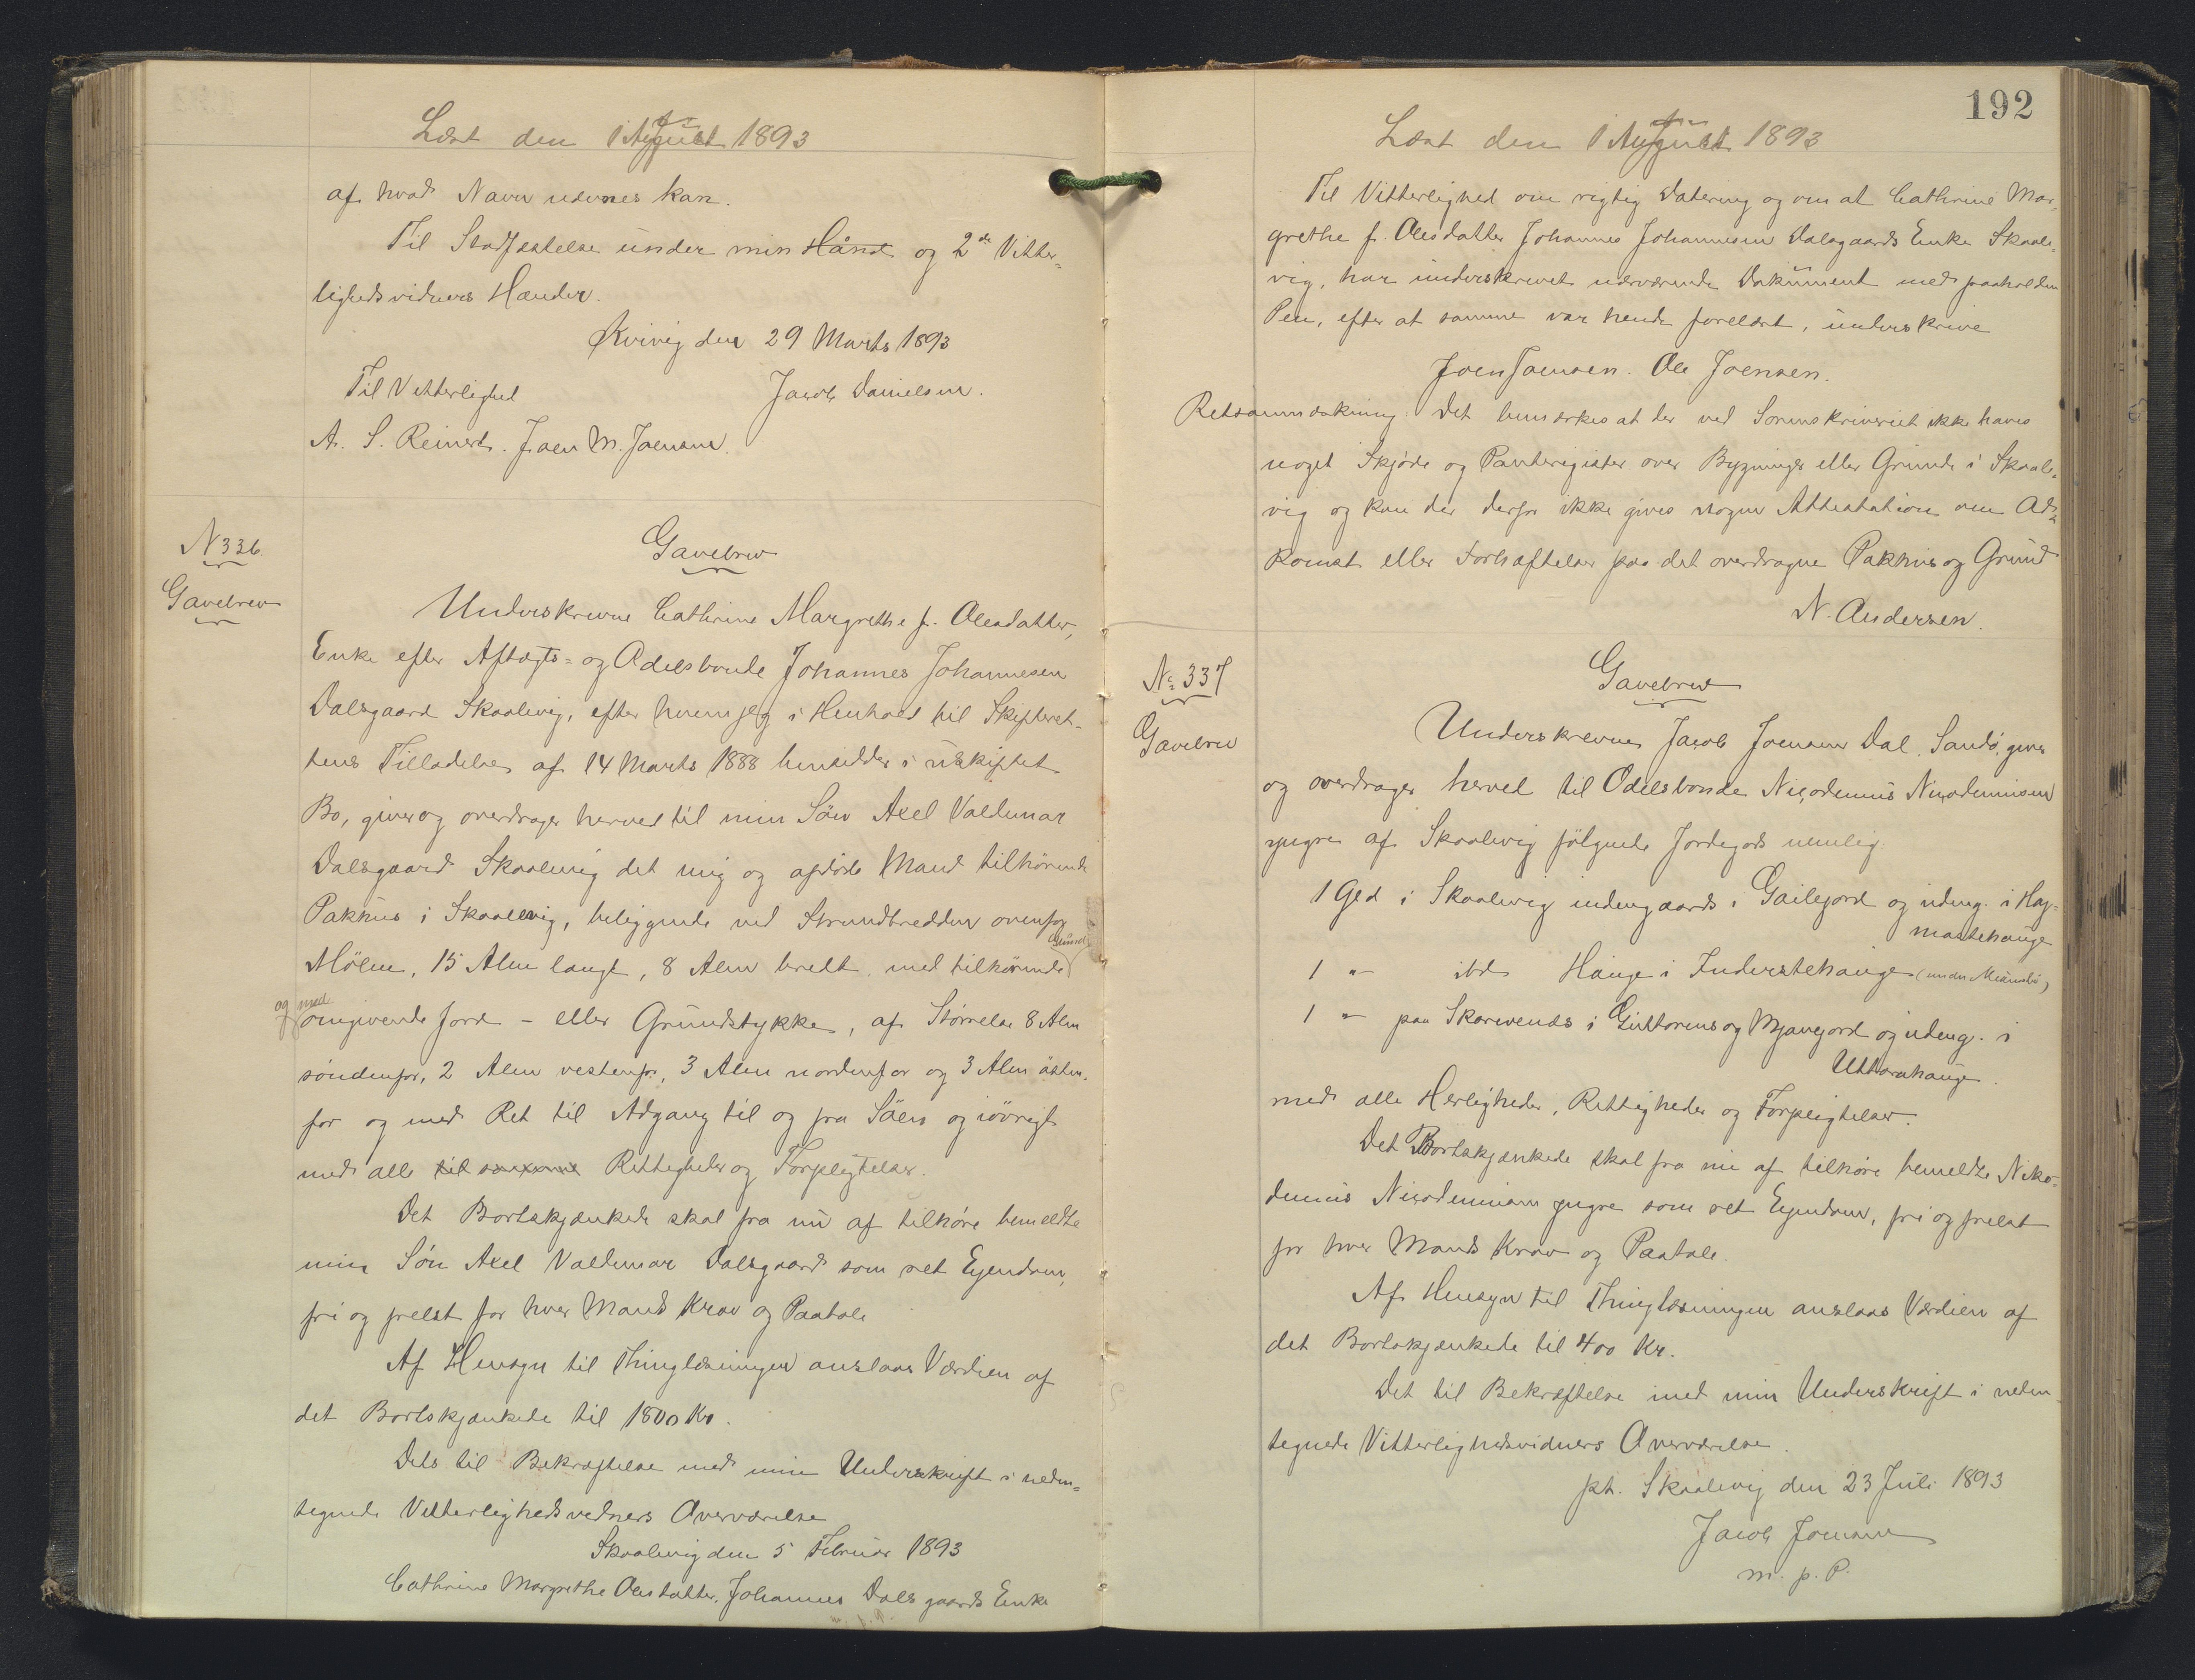 Læst den 1 August 1893
af hvad Navn nævnes kan.
Til Stadfæstelse under min Hånd og 2de Vitter=
lighedsvidners Hænder.
Kvivig den 29 Marts 1893
Til Vitterlighed Jacob Danielsen.
A. S. Reinert. Joen M. Joensen.
N 336.
Gavebrev
Gavebrev
Underskrevne Cathrine Margrethe f. Olesdatter,
Enke efter Aftægts= og Odelsbonde Johannes Johannesen
Dalsgaard Skaalevig, efter hvem jeg i Henhold til Skifteret=
tens Tilladelse af 14 Marts 1888 hensidder i uskiftet
Bo, giver og overdrager herved til min Søn Axel Valdemar
Dalsgaard Skaalevig det mig og afdøde Mand tilhørende
Pakhus i Skaalevig, beliggende ved Strandbredden ovenfor
Mölen, 15 Alen langt, 8 Alen bredt med tilhørende Grund
og med omgivende Jord - eller Grundstykke, af Størrelse 8 Alen
søndenfor, 2 Alen vestenfor, 3 Alen nordenfor og 3 Alen østen=
for og med Ret til Adgang til og fra Söen og iøvrigt
med alle til samme Rettigheder og Forpligtelser.
Det Bortskjænkede skal fra nu af tilhøre bemeldte
min Søn Axel Valdemar Dalsgaard som ret Ejendom,
fri og frelst for hver Mands Krav og Paatale
Af Hensyn til Thinglæsningen anslaas Værdien af
det Bortskjænkede til 1800 Kr.
Dets til Bekræftelse med min Underskrift i neden=
tegnede Vitterlighedsvidners Overværelse
Skaalevig den 5 Februar 1893
Cathrine Margrethe Olesdatter, Johannes Dalsgaards Enke
192
Læst den 1 August 1893
Til Vitterlighed om rigtig Datering og om at Cathrine Mar=
grethe f. Olesdatter Johannes Johannesen Dalsgaards Enke Skaale=
vig, har underskrevet nærværende Dokument med paaholden
Pen, efter at samme var hende forelæst, underskrive
Joen Joensen. Ole Joensen.
Retsanmærkning: Det bemærkes at der ved Sorenskriveriet ikke haves
noget Skjøde og Panteregister over Bygninger eller Grunde i Skaale=
vig og kan der derfor ikke gives nogen Attestation om Ad=
komst eller Forhæftelser paa det overdragne Pakhus og Grund
N. Andersen.
No 337
Gavebrev
Gavebrev
Underskrevne Jacob Joensen Dal, Sandö, giver
og overdrager herved til Odelsbonde Nicodemus Nicodemusen
yngre af Skaalevig følgende Jordegods nemlig:
1 Gld i Skaalevig indengaards i Gailegjord og udeng. i Høg=
mastehauge
1 " ibd Hauge i Inderstehauge (under
1 " paa Skarvenæs i Guttorms og Mjavegjord og udeng. i
Uttarahauge.
med alle Herligheder, Rettigheder og Forpligtelser.
Det Bortskjænkede skal fra nu af tilhøre bemeldte Niko=
demus Nicodemusen yngre som ret Ejendom, fri og frelst
for hver Mands Krav og Paatale.
Af Hensyn til Thinglæsningen anslaas Værdien af
det Bortskjænkede til 400 Kr.
Det til Bekræftelse med min Underskrift i neden=
tegnede Vitterlighedsvidners Overværelse.
pt. Skaalevig den 23 Juli 1893
Jacob Joensen
m. p. P.